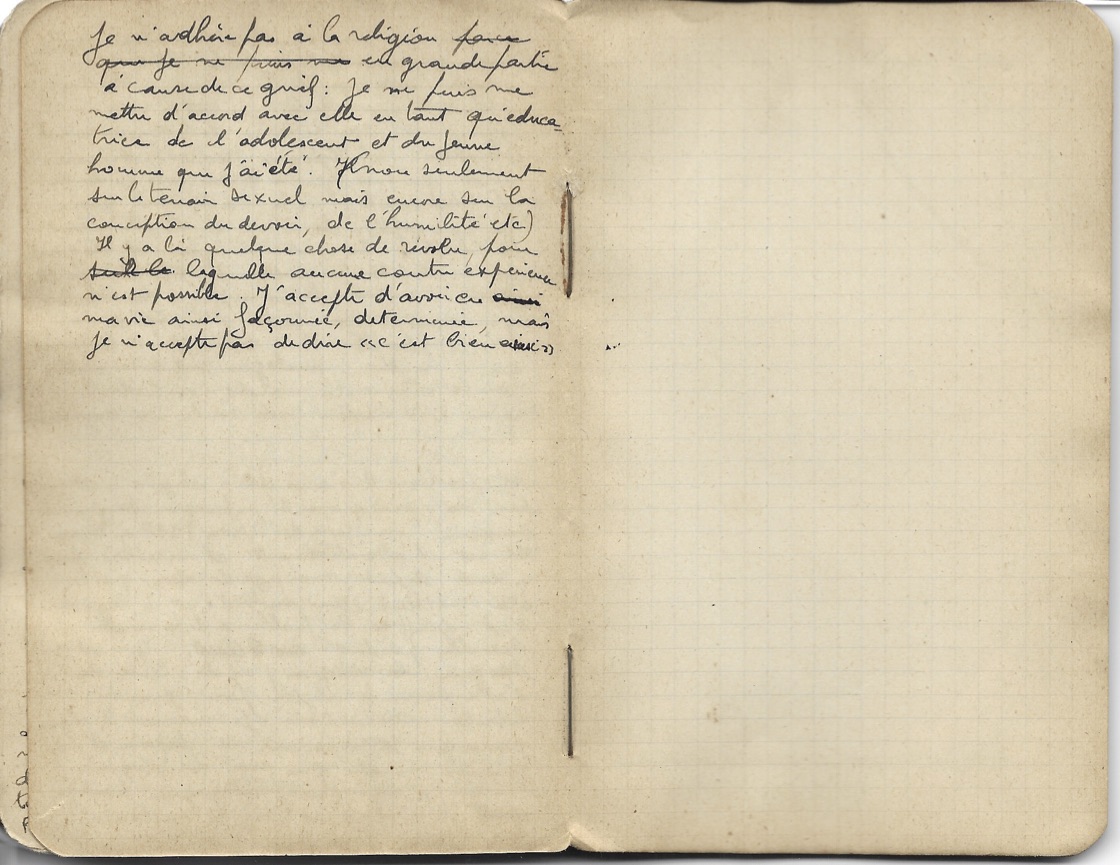 Je n'adhère pas à la religion parce
que je ne puis me en grande partie
à cause de ce grief : je ne puis me
mettre d'accord avec elle en tant qu'éduca-
trice de l'adolescent et du jeune
homme que j'ai été. (Non seulement
sur le terrain sexuel mais encore sur la
conception du devoir, de l'humilité etc)
Il y a là quelque chose de révolu, pour
laquelle aucune contre expérience
n'est possible. J'accepte d'avoir eu ainsi
ma vie ainsi façonnée, déterminée, mais
je n'accepte pas de dire « c'est bien ainsi »